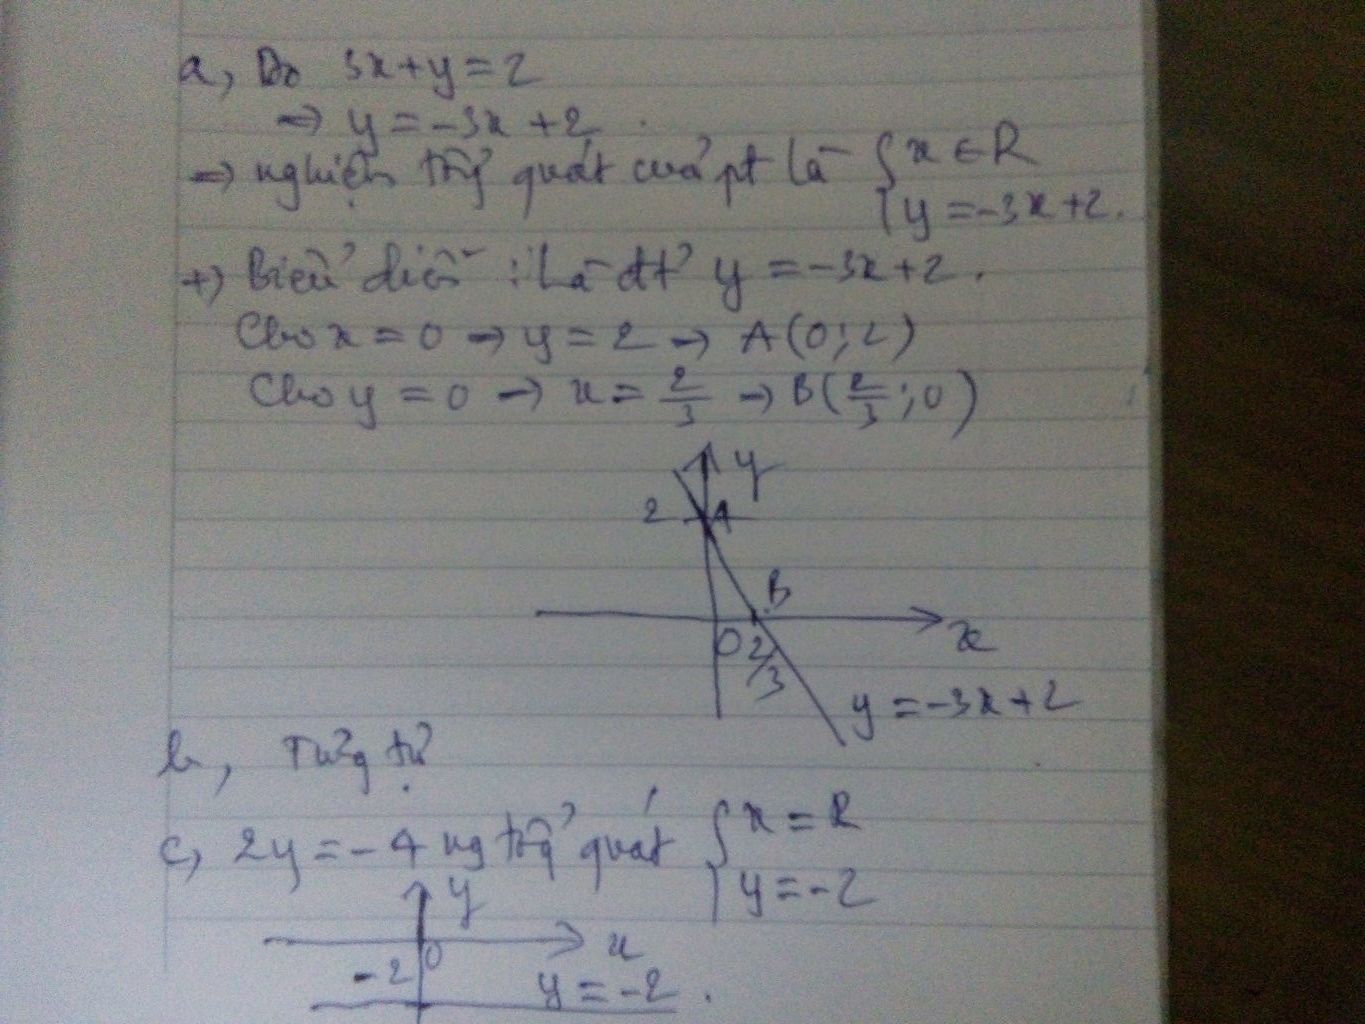 a, Do 3x+y=2
⇒ y = -3x +2.
⇒ nghiệm tổng quát của pt là { x ∈ R
{ y = -3x+2.
+) Biểu diễn : Là đt y = -3x+2.
Cho x = 0 → y = 2 → A(0;2)
Cho y = 0 → x = 2/3 → B(2/3;0)
y
2 A
B
O 2/3 x
y = -3x+2
b, Tương tự
c, 2y = -4 ng tổng quát { x = R
{ y = -2
y
O x
-2
y = -2.